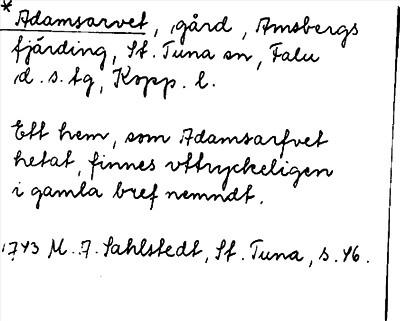 *Adamsarvet, gård, Amsbergs
fjärding, St. Tuna sn, Falu
d. s. tg, Kopp. l.
Ett hem, som Adamsarfvet
hetat, finnes vttryckeligen
i gamla bref nemndt.
1743 M. J. Sahlstedt, St. Tuna, s. 46.